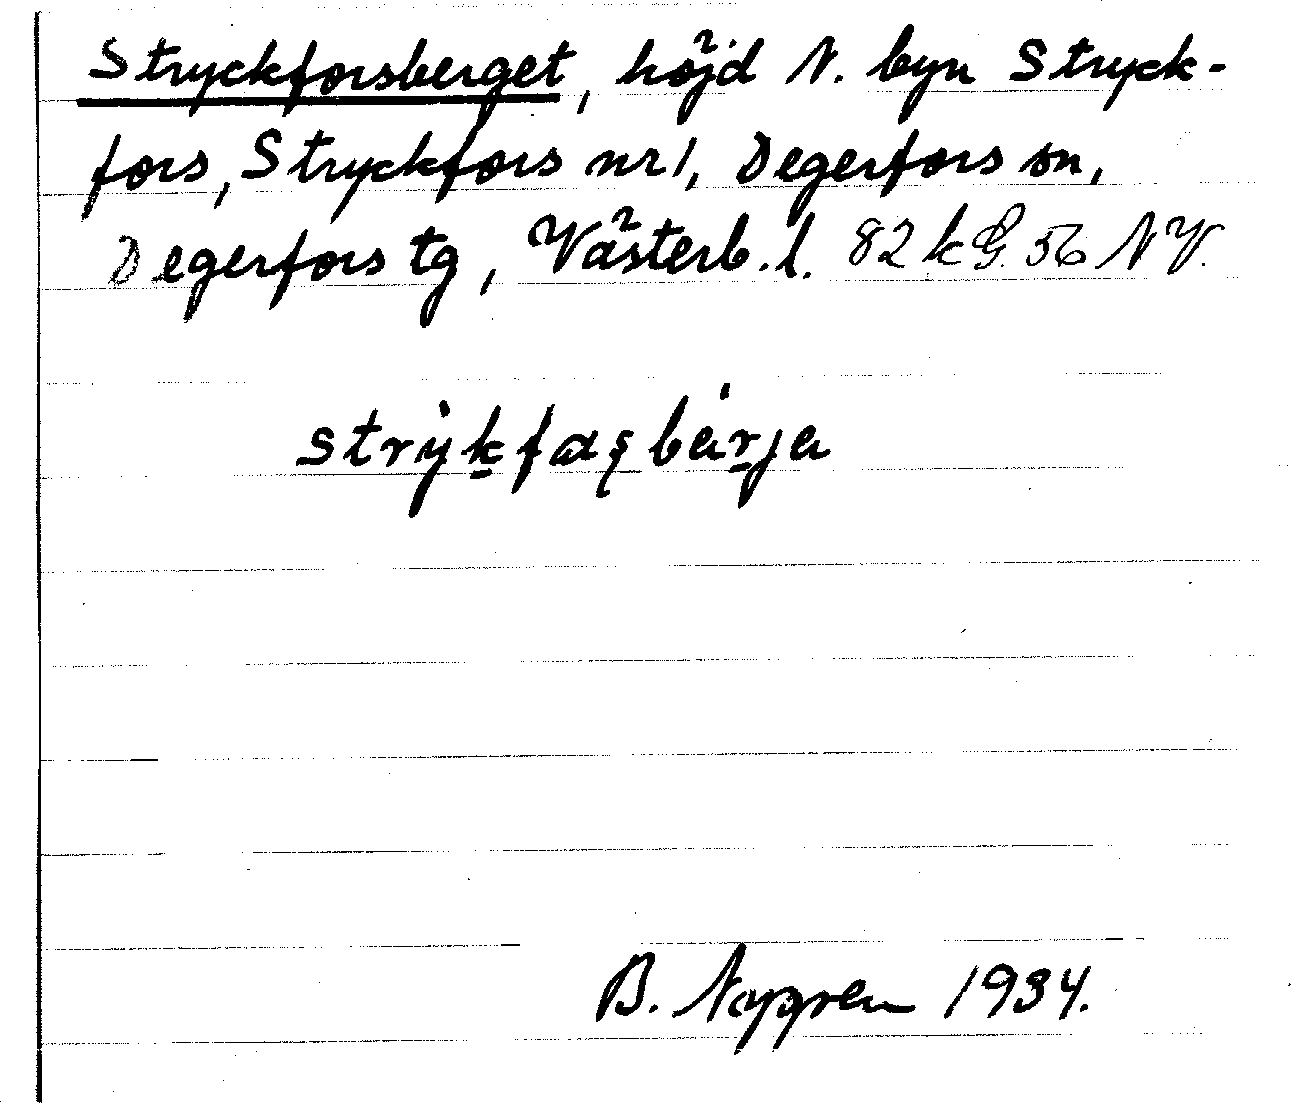 Stryckforsberget, höjd N. byn Stryck-
fors, Stryckfors nr 1, Degerfors sn,
Degerfors tg, Västerb. l. 82 k G. 56 NV.
strỳk̠faʂbàr̠ja
B. 1934.